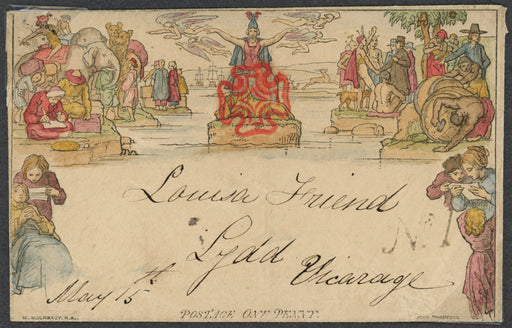 Louisa Friend
Lydd
Vicarage
May 15th
POSTAGE ONE PENNY.
W. MULREADY, R.A.
JOHN THOMPSON